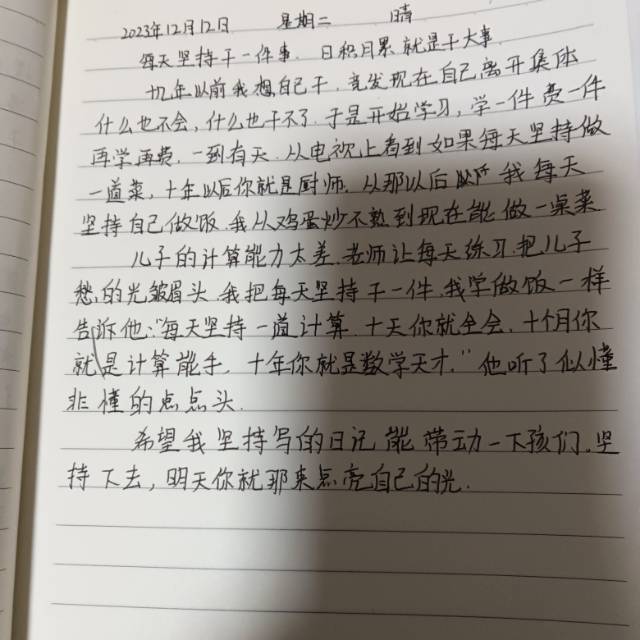 2023年12月12日 星期二 晴
每天坚持干一件事. 日积月累.就是干大事.
九年以前我想自己干,竟发现在自己离开集体
什么也不会,什么也干不了.于是开始学习,学一件费一件
再学再费,一到有天.从电视上看到如果每天坚持做
一道菜,十年以后你就是厨师.从那以后 我每天
坚持自己做饭.我从鸡蛋炒不熟到现在能做一桌菜
儿子的计算能力太差.老师让每天练习.把儿子
愁的光皱眉头.我把每天坚持干一件.我学做饭一样
告诉他:"每天坚持一道计算.十天你就全会.十个月你
就是计算能手,十年你就是数学天才."他听了似懂
非懂的点点头.
希望我坚持写的日记能带动一下孩们.坚
持下去,明天你就那来点亮自己的光.